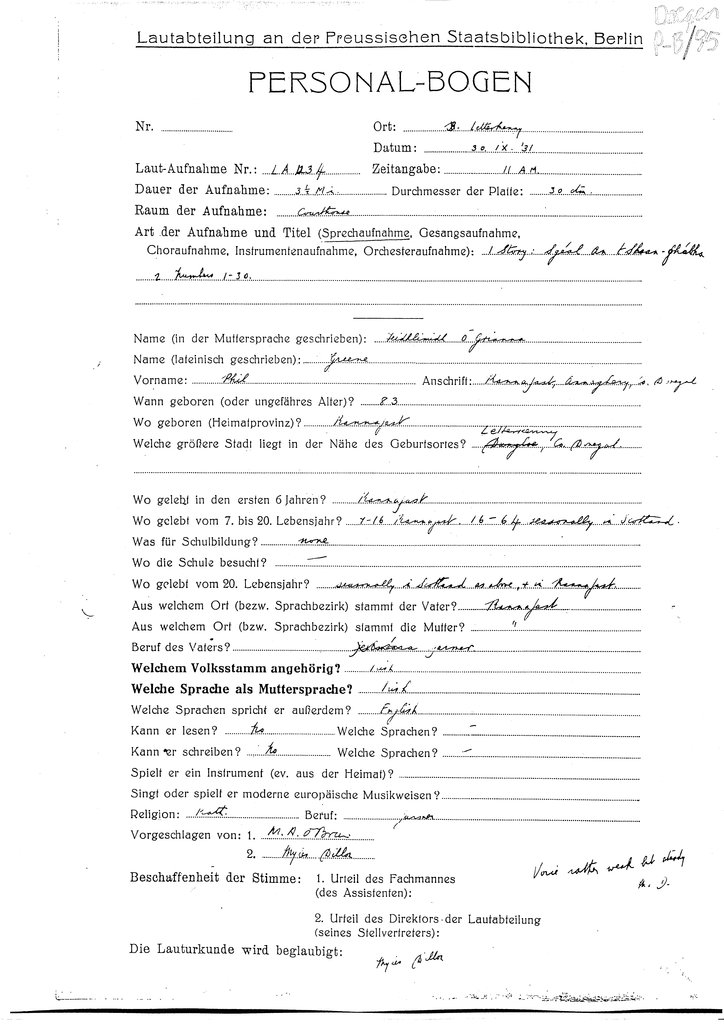 Doegen
Lautabteilung an der Preussischen Staatsbibliothek, Berlin
P-B/95
PERSONAL-BOGEN
Nr. Ort: B. Letterkenny
Datum: 30. IX. '31
Laut-Aufnahme Nr.: LA Zeitangabe: 11 AM.
Dauer der Aufnahme: 3½ Mi. Durchmesser der Platte: 30
Raum der Aufnahme: Courthouse
Art der Aufnahme und Titel (Sprechaufnahme, Gesangsaufnahme,
Choraufnahme, Instrumentenaufnahme, Orchesteraufnahme): 1 Story: Sgéal an tShean-Ghátha
2 Numbers 1-30.
Name (in der Muttersprache geschrieben): Feidhlimidh Ó Grianna
Name (lateinisch geschrieben): Greene
Vorname: Phil Anschrift: Rannafast, Annaghery, Co. Donegal
Wann geboren (oder ungefähres Alter)? 83
Wo geboren (Heimatprovinz)? Rannafast
Letterkenny
Welche größere Stadt liegt in der Nähe des Geburtsortes? Dungloe, Co. Donegal.
Wo gelebt in den ersten 6 Jahren? Rannafast
Wo gelebt vom 7. bis 20. Lebensjahr? 7-16 Rannafast. 16-64 seasonally in Scotland.
Was für Schulbildung? none
Wo die Schule besucht? —
Wo gelebt vom 20. Lebensjahr? seasonally in Scotland as above, + in Rannafast.
Aus welchem Ort (bezw. Sprachbezirk) stammt der Vater? Rannafast
Aus welchem Ort (bezw. Sprachbezirk) stammt die Mutter? "
Beruf des Vaters? farmer
Welchem Volksstamm angehörig? Irish
Welche Sprache als Muttersprache? Irish
Welche Sprachen spricht er außerdem? English
Kann er lesen? No Welche Sprachen? —
Kann er schreiben? No Welche Sprachen? —
Spielt er ein Instrument (ev. aus der Heimat)?
Singt oder spielt er moderne europäische Musikweisen?
Religion: Kath. Beruf: farmer
Vorgeschlagen von: 1. M. A. O'Brien
2. Myles Dillon
Beschaffenheit der Stimme: 1. Urteil des Fachmannes
(des Assistenten):
Voice rather weak but steady
M. D.
2. Urteil des Direktors der Lautabteilung
(seines Stellvertreters):
Die Lauturkunde wird beglaubigt: Myles Dillon